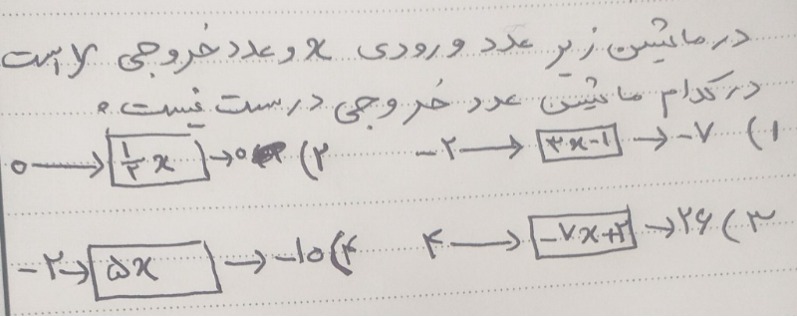 در ماشین زیر عدد ورودی x و عدد خروجی y است
در کدام ماشین عدد خروجی درست نیست ؟
۱) -۲ → ۳x-۱ → -۷
۲) ۰ → ۱/۲ x → ۰
۳) ۴ → -۷x+۲ → ۲۶
۴) -۲ → ۵x → -۱۰